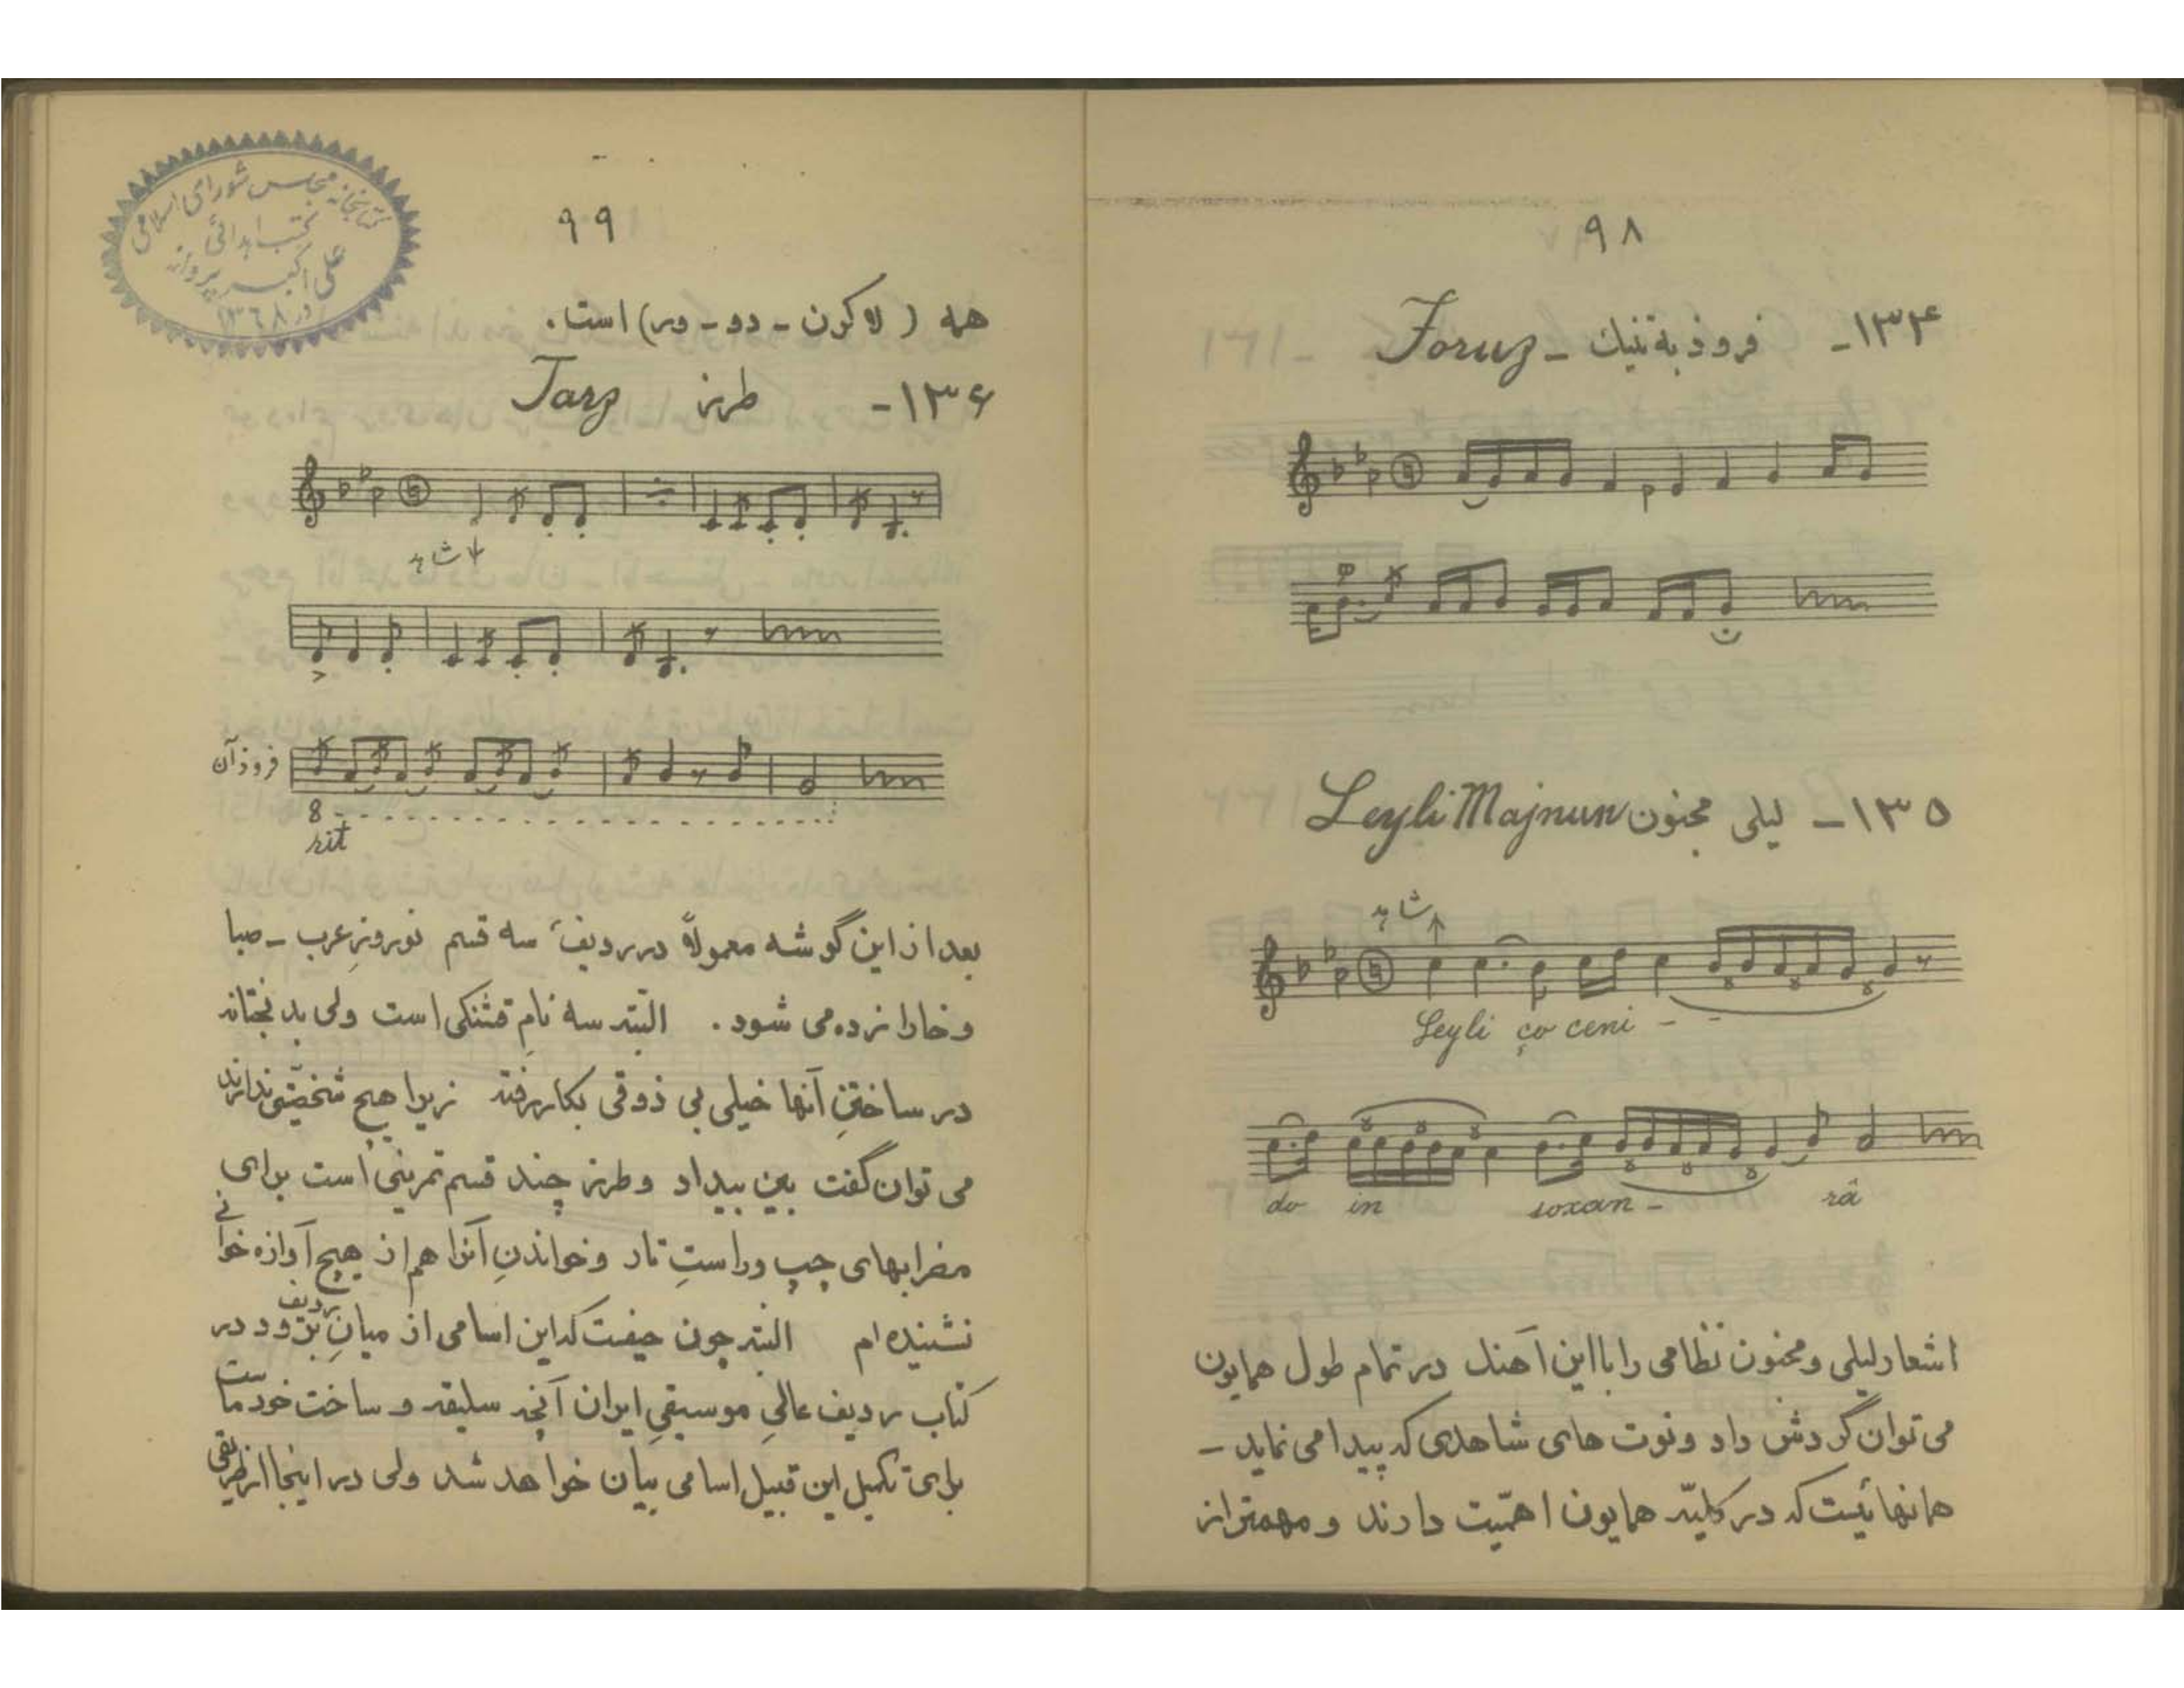 ۹۸
۱۳۴- فرود به تنیك - Foruz
۱۳۵- لیلی مجنون Leyli Majnun
شاهد
Leyli ço ceni - -
do in soxan - râ
اشعار لیلی و مجنون نظامی را با این آهنك در تمام طول همایون
می توان گردش داد و نوت های شاهدی که پیدا می نماید -
همانهائیست که در کلیّه همایون اهمّیت دارند و مهمتر از
۹۹
همه ( لا کرن - دو - ر) است.
۱۳۶- طرز Tarz
شاهد
فرود آن
8
rit
بعد از این گوشه معمولاً در ردیف سه قسم نوروزِ عرب - صبا
و خارا زده می شود. البتّه سه نامِ قشنگی است ولی بدبختانه
در ساختنِ آنها خیلی بی ذوقی بکار رفته زیرا هیچ شخصیّتی ندارند
می توان گفت بین بیداد و طرز چند قسم تمرینی است برای
مضرابهای چپ و راستِ تار و خواندنِ آنرا هم از هیچ آوازه خوانی
نشنیده ام البته چون حیفست که این اسامی از میانِ ردیف برود در
کتاب ردیف عالیِ موسیقیِ ایران آنچه سلیقه و ساخت خود ماست
برای تکمیل این قبیل اسامی بیان خواهد شد ولی در اینجا از طریقی
کتابخانه مجلس شورای اسلامی
کتب اهدائی
علی اکبر پروانه
در ۱۳۶۸